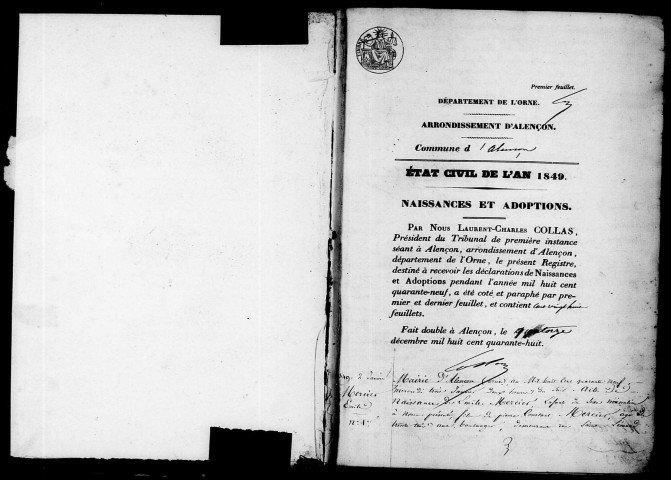 Premier feuillet.
DÉPARTEMENT DE L'ORNE.
ARRONDISSEMENT D'ALENÇON.
Commune d'Alençon
ÉTAT CIVIL DE L'AN 1849.
NAISSANCES ET ADOPTIONS.
PAR NOUS LAURENT-CHARLES COLLAS,
Président du Tribunal de première instance
séant à Alençon, arrondissement d'Alençon,
département de l'Orne, le présent Registre,
destiné à recevoir les déclarations de Naissances
et Adoptions pendant l'année mil huit cent
quarante-neuf, a été coté et paraphé par pre-
mier et dernier feuillet, et contient cent vingt huit
feuillets.
Fait double à Alençon, le quatorze
décembre mil huit cent quarante-huit.
Collas
2 Janvier
Mercier
Emile
N° 1er
Mairie d'Alençon mil huit cent quarante neuf
trois Janvier, deux heures du soir. Acte de
Naissance de Emile Mercier,
à nous présenté, fils de pierre Mercier, âgé de
trente trois ans, demeurant